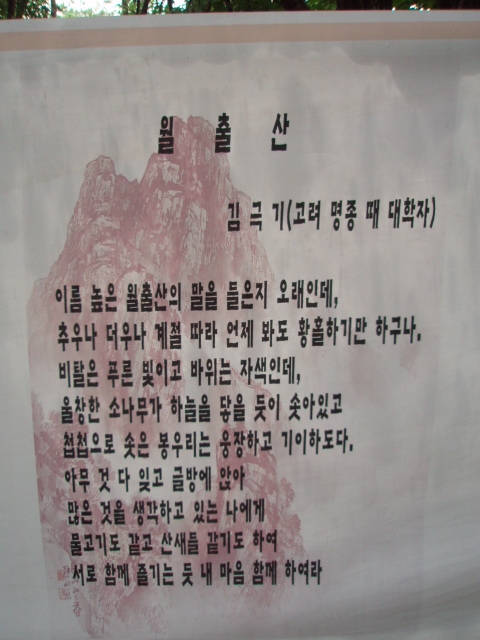 월 출 산
김 극 기(고려 명종 때 대학자)
이름 높은 월출산의 말을 들은지 오래인데,
추우나 더우나 계절 따라 언제 봐도 황홀하기만 하구나.
비탈은 푸른 빛이고 바위는 자색인데,
울창한 소나무가 하늘을 닿을 듯이 솟아있고
첩첩으로 솟은 봉우리는 웅장하고 기이하도다.
아무 것 다 잊고 글방에 앉아
많은 것을 생각하고 있는 나에게
물고기도 같고 산새들 같기도 하여
서로 함께 즐기는 듯 내 마음 함께 하여라